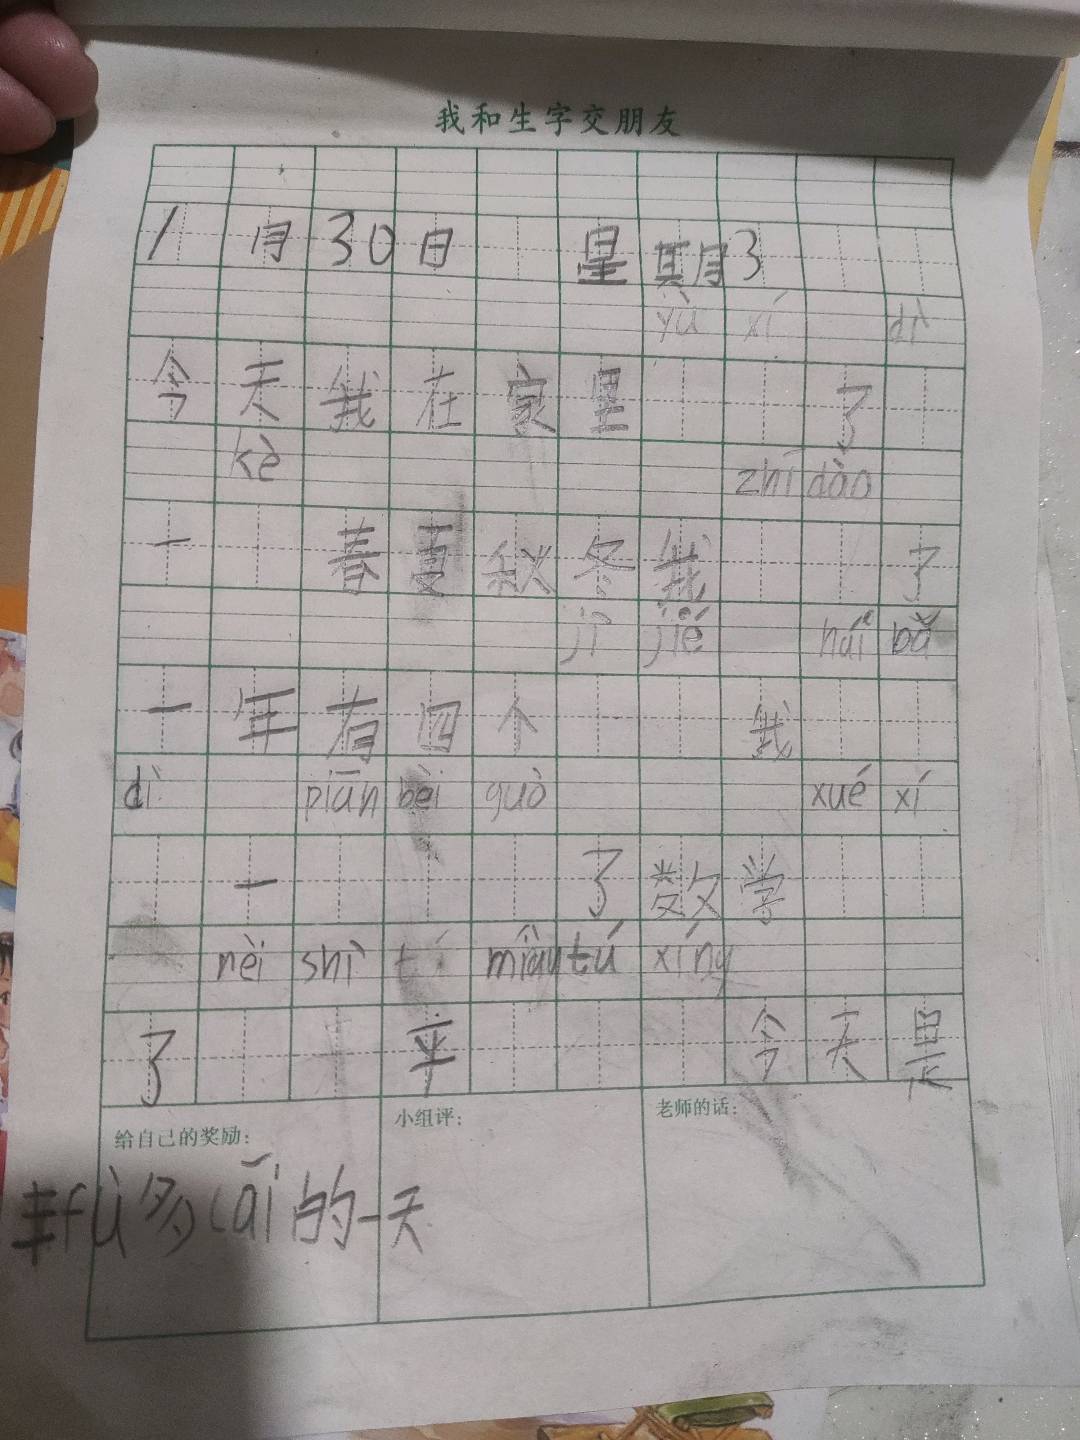 我和生字交朋友
1月30日 星期3
yù xí dì
今天我在家里 了
kè zhī dào
一 春夏秋冬我 了
jì jié hái bǎ
一年有四个 我
dì piān bèi guò xué xí
一 了数学
nèi shì tí miàn tú xíng
了 平 今天是
给自己的奖励: 小组评: 老师的话:
丰fù多cǎi的一天